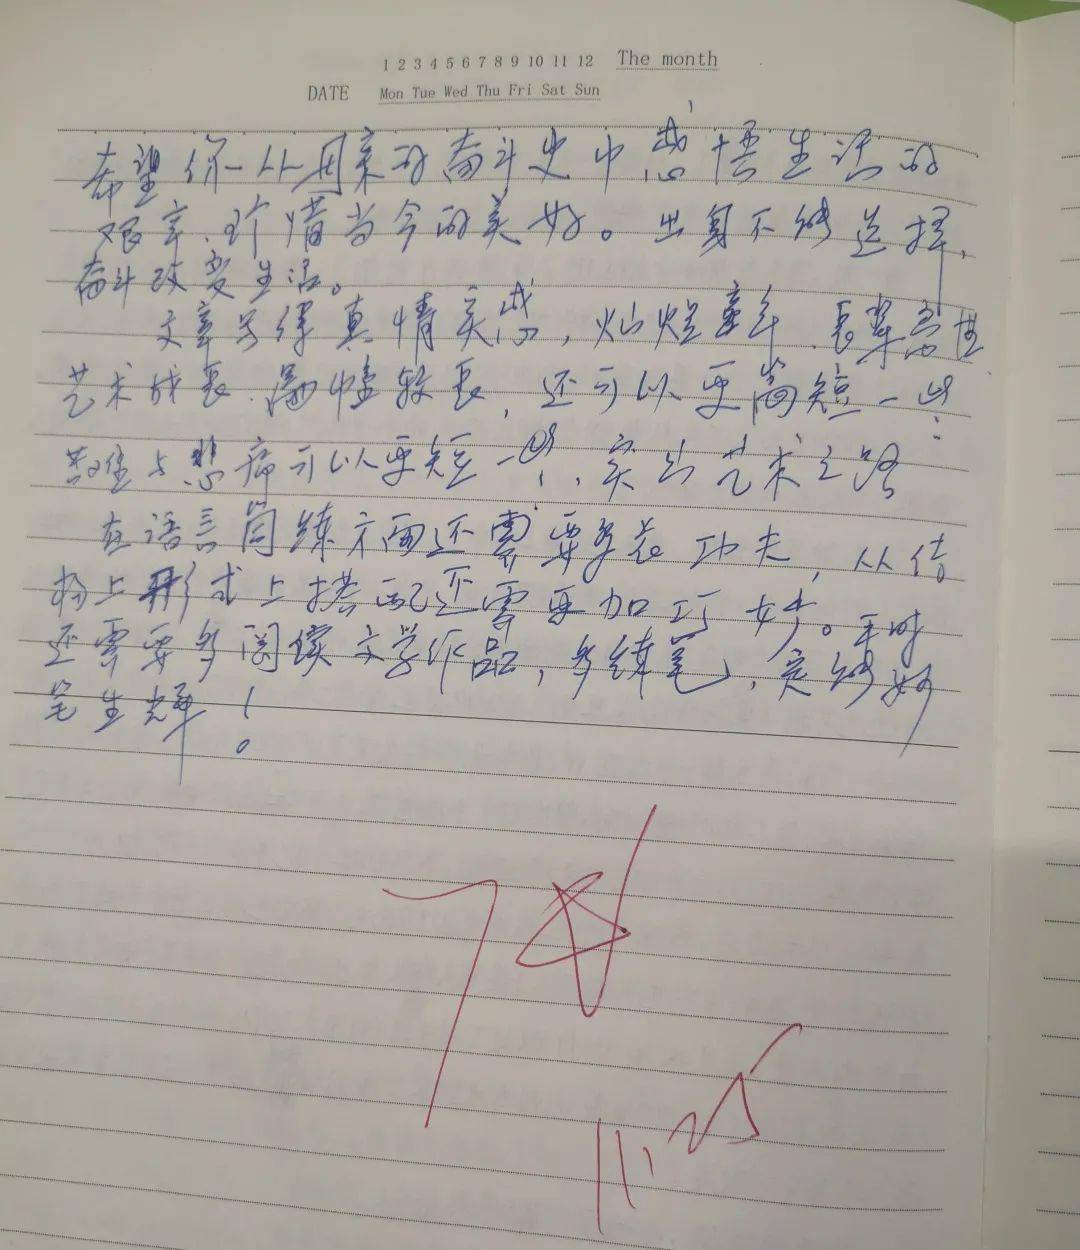 1 2 3 4 5 6 7 8 9 10 11 12 The month
DATE Mon Tue Wed Thu Fri Sat Sun
希望你从周亲的奋斗史中感悟生活的
艰辛、珍惜当今的美好。出身不能选择,
奋斗改变生活。
文章写得真情实感,灿烂童年、
艺术成长、较长,还可以更简短一些:
苦难与悲痛可以更短一些,突出艺术之路
在语言简练方面还需要多花功夫,从结
构上形式上搭配还需更加巧妙。平时
还需要多阅读文学作品,多练笔,定能妙
笔生辉!
11.25